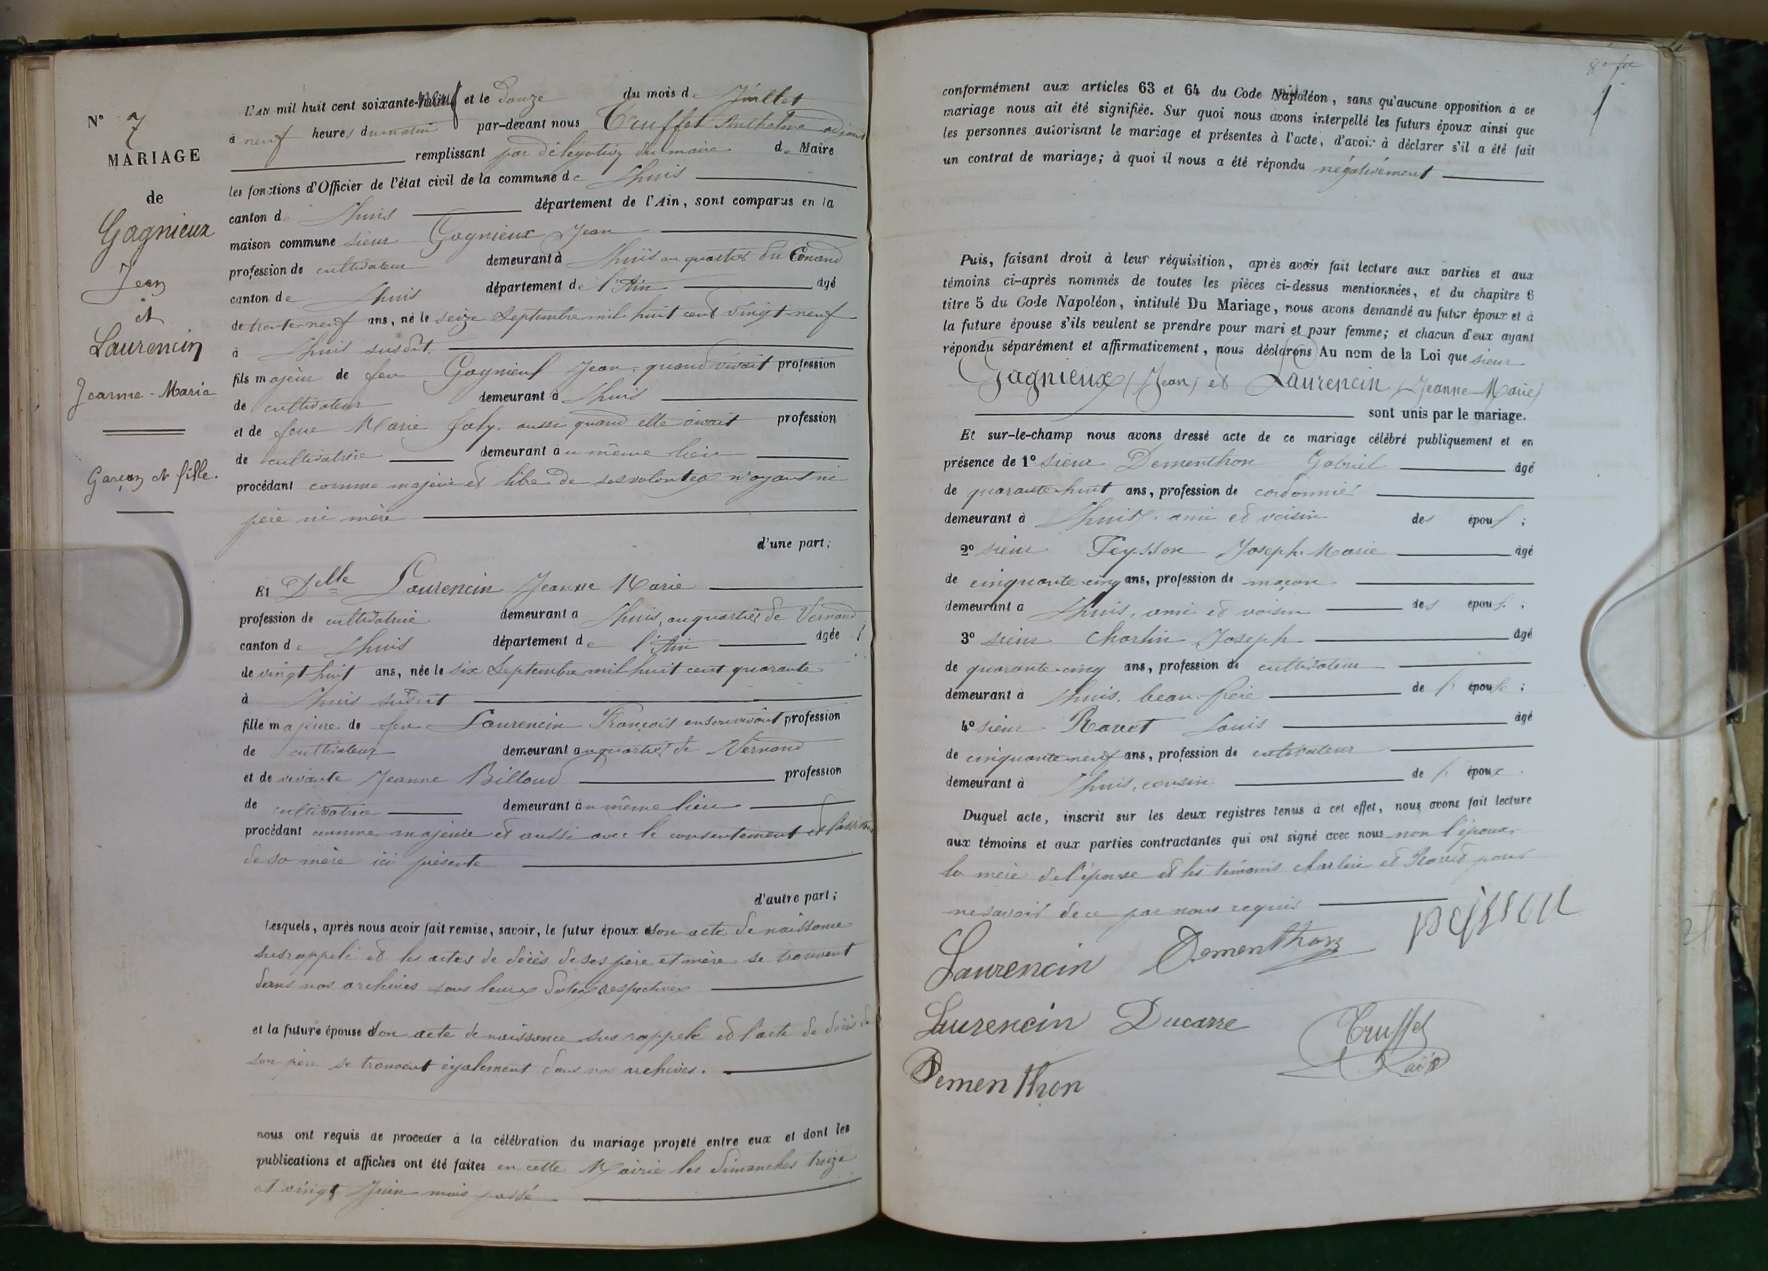 N° 7
MARIAGE
de
Gagnieux
Jean
et
Laurencin
Jeanne-Marie
Garçon et fille.
L'AN mil huit cent soixante-neuf et le douze du mois de Juillet
à neuf heures du matin par-devant nous Truffet Anthelme adjoint
remplissant par délégation du maire de Maire
les fonctions d'Officier de l'état civil de la commune de Lhuis
canton de Lhuis département de l'Ain, sont comparus en la
maison commune sieur Gagnieux Jean
profession de cultivateur demeurant à Lhuis au quartier du
canton de Lhuis département de l'Ain âgé
de trente-neuf ans, né le seize Septembre mil huit cent vingt-neuf
à Lhuis susdit,
fils majeur de feu Gagnieux Jean, quand vivait profession
de cultivateur demeurant à Lhuis
et de feue Marie Joly, aussi quand elle vivait profession
de cultivatrice demeurant au même lieu
procédant comme majeur et libre de ses volontés n'ayant ni
père ni mère
d'une part;
Et Delle Laurencin Jeanne Marie
profession de cultivatrice demeurant à Lhuis, au quartier de Vernand
canton de Lhuis département de l'Ain âgée
de vingt huit ans, née le six Septembre mil huit cent quarante
à Lhuis susdit
fille majeure de feu Laurencin François en son vivant profession
de cultivateur demeurant au quartier de Vernand
et de vivante Jeanne Billoud profession
de cultivatrice demeurant au même lieu
procédant comme majeure et aussi avec le consentement et l'assistance
de sa mère ici présente
d'autre part;
Lesquels, après nous avoir fait remise, savoir, le futur époux son acte de naissance
susrappelé et les actes de décès de ses père et mère se trouvent
dans nos archives sous leurs dates respectives
et la future épouse son acte de naissance sus rappelé et l'acte de décès de
son père se trouvent également dans nos archives.
nous ont requis de procéder à la célébration du mariage projeté entre eux et dont les
publications et affiches ont été faites en cette Mairie les dimanches treize
et vingt Juin mois passé
conformément aux articles 63 et 64 du Code Napoléon, sans qu'aucune opposition à ce
mariage nous ait été signifiée. Sur quoi nous avons interpellé les futurs époux ainsi que
les personnes autorisant le mariage et présentes à l'acte, d'avoir à déclarer s'il a été fait
un contrat de mariage; à quoi il nous a été répondu négativement
Puis, faisant droit à leur réquisition, après avoir fait lecture aux parties et aux
témoins ci-après nommés de toutes les pièces ci-dessus mentionnées, et du chapitre 6
titre 5 du Code Napoléon, intitulé Du Mariage, nous avons demandé au futur époux et à
la future épouse s'ils veulent se prendre pour mari et pour femme; et chacun d'eux ayant
répondu séparément et affirmativement, nous déclarons Au nom de la Loi que sieur
Gagnieux (Jean) et Laurencin (Jeanne-Marie)
sont unis par le mariage.
Et sur-le-champ nous avons dressé acte de ce mariage célébré publiquement et en
présence de 1° sieur Dementhon Gabriel âgé
de quarante-huit ans, profession de cordonnier
demeurant à Lhuis, ami et voisin des époux;
2° sieur Feysson Joseph-Marie âgé
de cinquante-cinq ans, profession de maçon
demeurant à Lhuis, ami et voisin des époux;
3° sieur Charlin Joseph âgé
de quarante-cinq ans, profession de cultivateur
demeurant à Lhuis, beau-frère de l'époux;
4° sieur Ravet Louis âgé
de cinquante-neuf ans, profession de cultivateur
demeurant à Lhuis, cousin de l'époux.
Duquel acte, inscrit sur les deux registres tenus à cet effet, nous avons fait lecture
aux témoins et aux parties contractantes qui ont signé avec nous non l'époux,
la mère de l'épouse et les témoins Charlin et Ravet pour
ne savoir de ce par nous requis
Laurencin Dementhon
Laurencin Ducarre Truffet
Dementhon